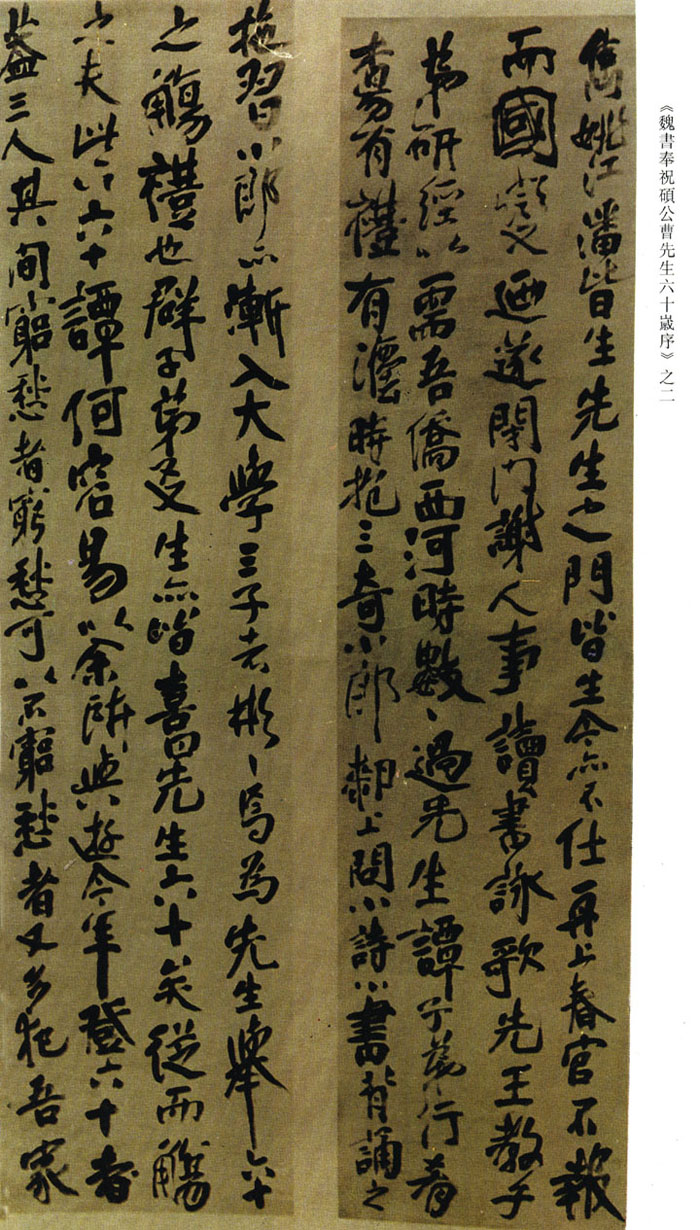 《魏書奉祝碩公曹先生六十歲序》之二
雋姚江潘皆生先生之門皆生今亦不仕再上春官不報
而國變迺遂閉門謝人事讀書詠歌先王教子
弟研經以需吾僑西河時數〻過先生譚子弟行肴
有禮有灋時抱三奇小郎厀上問小詩小書背誦之
習小郎亦漸入大學三子者彬〻焉為先生舉六十
之觴禮也群子弟友生亦皆喜先生六十矣從而觴
之夫此六十譚何容易以余所與遊今年登六十者
蓋三人其間窮愁者窮愁可以不窮愁者又多犯吾家